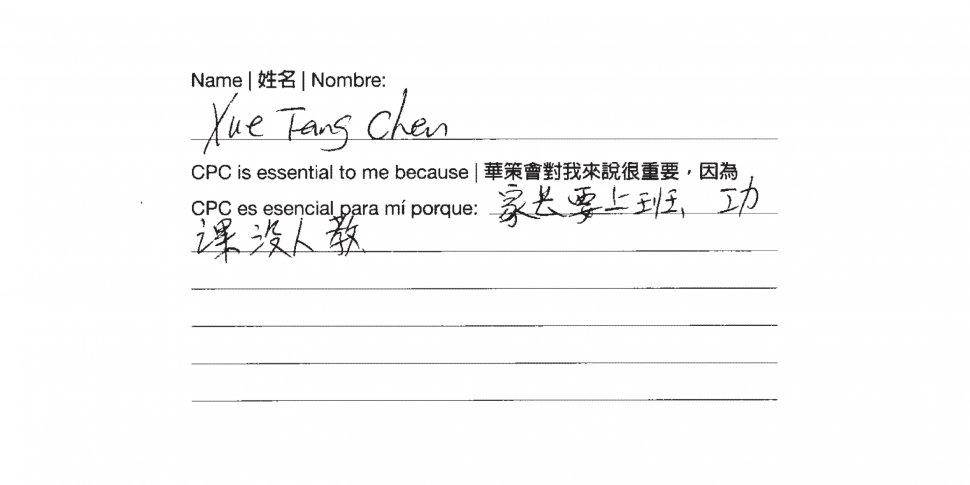 Name | 姓名 | Nombre:
Xue Tang Chen
CPC is essential to me because | 華策會對我來說很重要，因為
CPC es esencial para mí porque: 家长要上班、功
课没人教